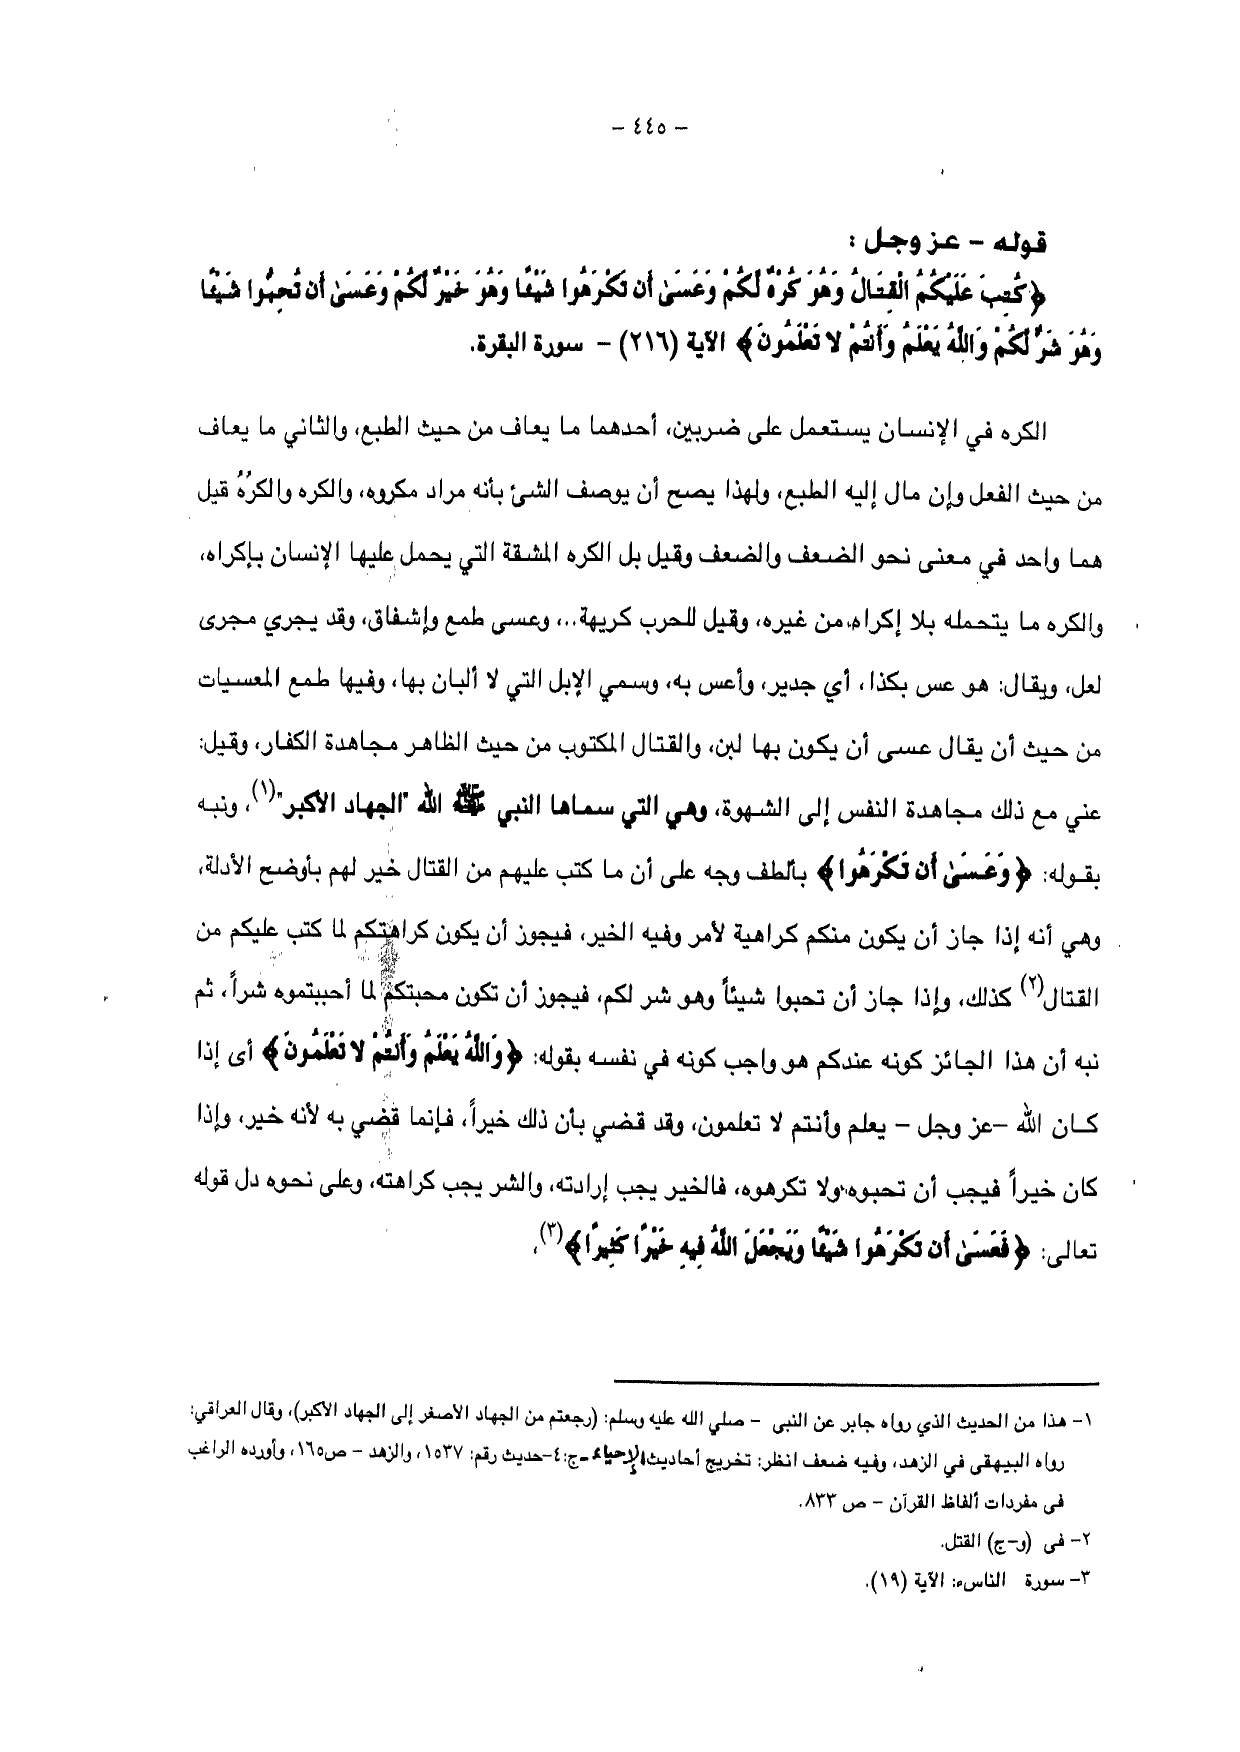 - ٤٤٥ -
قوله - عز وجل :
﴿كُتِبَ عَلَيْكُمُ الْقِتَالُ وَهُوَ كُرْهٌ لَكُمْ وَعَسَىٰ أَن تَكْرَهُوا شَيْئًا وَهُوَ خَيْرٌ لَكُمْ وَعَسَىٰ أَن تُحِبُّوا شَيْئًا
وَهُوَ شَرٌّ لَكُمْ وَاللَّهُ يَعْلَمُ وَأَنتُمْ لا تَعْلَمُونَ﴾ الآية (٢١٦) - سورة البقرة.
الكره في الإنسان يستعمل على ضربين، أحدهما ما يعاف من حيث الطبع، والثاني ما يعاف
من حيث الفعل وإن مال إليه الطبع، ولهذا يصح أن يوصف الشئ بأنه مراد مكروه، والكره والكرُهُ قيل
هما واحد في معنى نحو الضعف والضعف وقيل بل الكره المشقة التي يحمل عليها الإنسان بإكراه،
والكره ما يتحمله بلا إكراه من غيره، وقيل للحرب كريهة..، وعسى طمع وإشفاق، وقد يجري مجرى
لعل، ويقال: هو عس بكذا، أي جدير، وأعس به، وسمي الإبل التي لا ألبان بها، وفيها طمع المعسيات
من حيث أن يقال عسى أن يكون بها لبن، والقتال المكتوب من حيث الظاهر مجاهدة الكفار، وقيل:
عني مع ذلك مجاهدة النفس إلى الشهوة، وهي التي سماها النبي ﷺ الله "الجهاد الأكبر"(١)، ونبه
بقوله: ﴿وَعَسَىٰ أَن تَكْرَهُوا﴾ بألطف وجه على أن ما كتب عليهم من القتال خير لهم بأوضح الأدلة،
وهي أنه إذا جاز أن يكون منكم كراهية لأمر وفيه الخير، فيجوز أن يكون كراهتكم لما كتب عليكم من
القتال(٢) كذلك، وإذا جاز أن تحبوا شيئاً وهو شر لكم، فيجوز أن تكون محبتكم لما أحببتموه شراً، ثم
نبه أن هذا الجائز كونه عندكم هو واجب كونه في نفسه بقوله: ﴿وَاللَّهُ يَعْلَمُ وَأَنتُمْ لا تَعْلَمُونَ﴾ أى إذا
كان الله -عز وجل - يعلم وأنتم لا تعلمون، وقد قضي بأن ذلك خيراً، فإنما قضي به لأنه خير، وإذا
كان خيراً فيجب أن تحبوه ولا تكرهوه، فالخير يجب إرادته، والشر يجب كراهته، وعلى نحوه دل قوله
تعالى: ﴿فَعَسَىٰ أَن تَكْرَهُوا شَيْئًا وَيَجْعَلَ اللَّهُ فِيهِ خَيْرًا كَثِيرًا﴾(٣)،
١- هذا من الحديث الذي رواه جابر عن النبى - صلي الله عليه وسلم: (رجعتم من الجهاد الأصغر إلى الجهاد الأكبر)، وقال العراقي:
رواه البيهقى في الزهد، وفيه ضعف انظر: تخريج أحاديث الإحياء -ج:٤-حديث رقم: ١٥٣٧، والزهد - ص١٦٥، وأورده الراغب
فى مفردات ألفاظ القرآن - ص ٨٣٣.
٢- فى (و-ج) القتل.
٣- سورة الناسء: الآية (١٩).